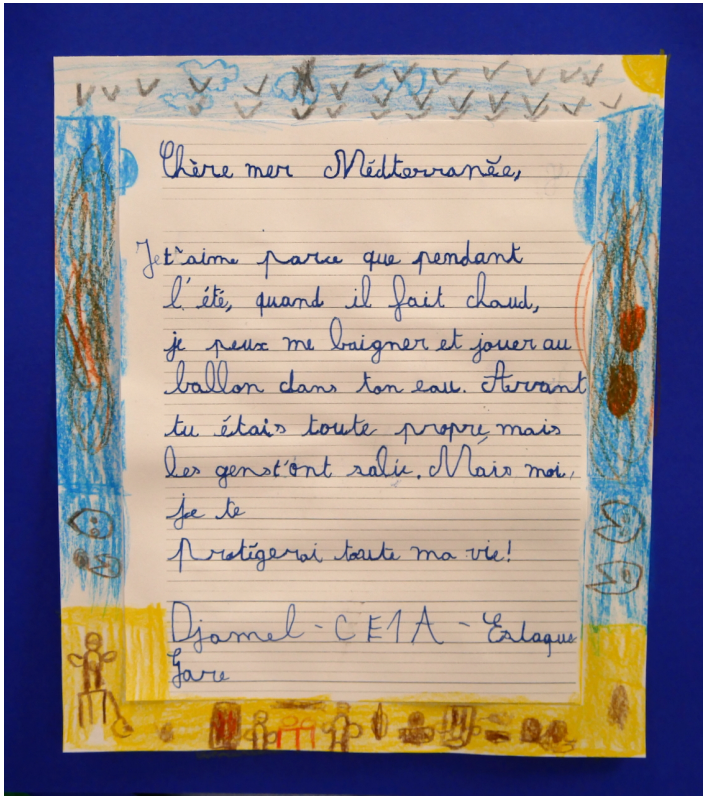 Chère mer Méditerranée,
Je t'aime parce que pendant
l'été, quand il fait chaud,
je peux me baigner et jouer au
ballon dans ton eau. Avant
tu étais toute propre, mais
les gens t'ont salie. Mais moi,
je te
protégerai toute ma vie!
Djamel - CE1A - Estaque
Gare